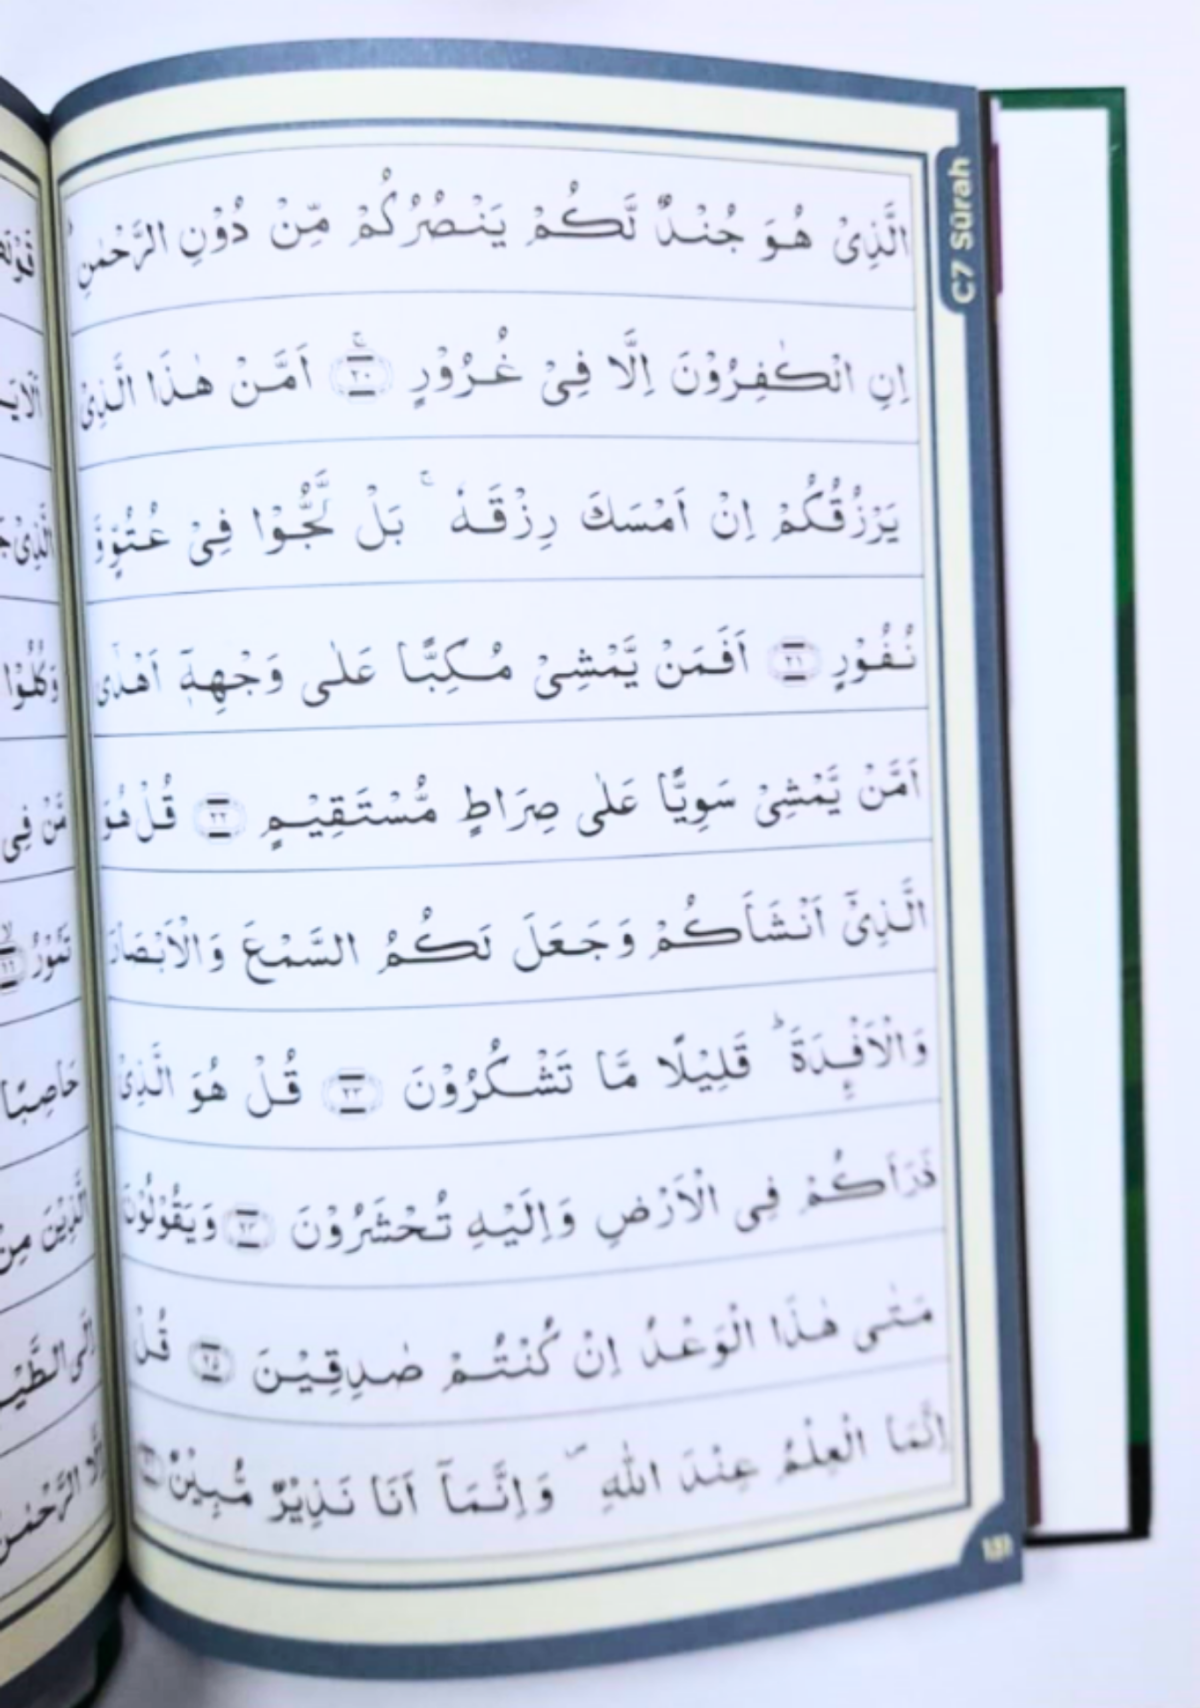 C7 Sūrah
الَّذِىْ هُوَ جُنْدٌ لَّكُمْ يَنْصُرُكُمْ مِّنْ دُوْنِ الرَّحْمٰنِ ۗ
اِنِ الْكٰفِرُوْنَ اِلَّا فِىْ غُرُوْرٍ ۚ ٢٠ اَمَّنْ هٰذَا الَّذِىْ
يَرْزُقُكُمْ اِنْ اَمْسَكَ رِزْقَهٗ ۚ بَلْ لَّجُّوْا فِىْ عُتُوٍّ وَّ
نُفُوْرٍ ٢١ اَفَمَنْ يَّمْشِىْ مُكِبًّا عَلٰى وَجْهِهٖٓ اَهْدٰى
اَمَّنْ يَّمْشِىْ سَوِيًّا عَلٰى صِرَاطٍ مُّسْتَقِيْمٍ ٢٢ قُلْ هُوَ
الَّذِىْٓ اَنْشَاَكُمْ وَجَعَلَ لَكُمُ السَّمْعَ وَالْاَبْصَارَ
وَالْاَفْـِٕدَةَ ؕ قَلِيْلًا مَّا تَشْكُرُوْنَ ٢٣ قُلْ هُوَ الَّذِىْ
ذَرَاَكُمْ فِى الْاَرْضِ وَاِلَيْهِ تُحْشَرُوْنَ ٢٤ وَيَقُوْلُوْنَ
مَتٰى هٰذَا الْوَعْدُ اِنْ كُنْتُمْ صٰدِقِيْنَ ٢٥ قُلْ
اِنَّمَا الْعِلْمُ عِنْدَ اللّٰهِ ۖ وَاِنَّمَآ اَنَا نَذِيْرٌ مُّبِيْنٌ ٢٦